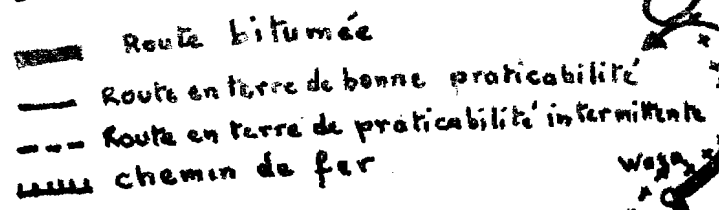 Route bitumée
Route en terre de bonne praticabilité
Route en terre de praticabilité intermittente
chemin de fer
Waza